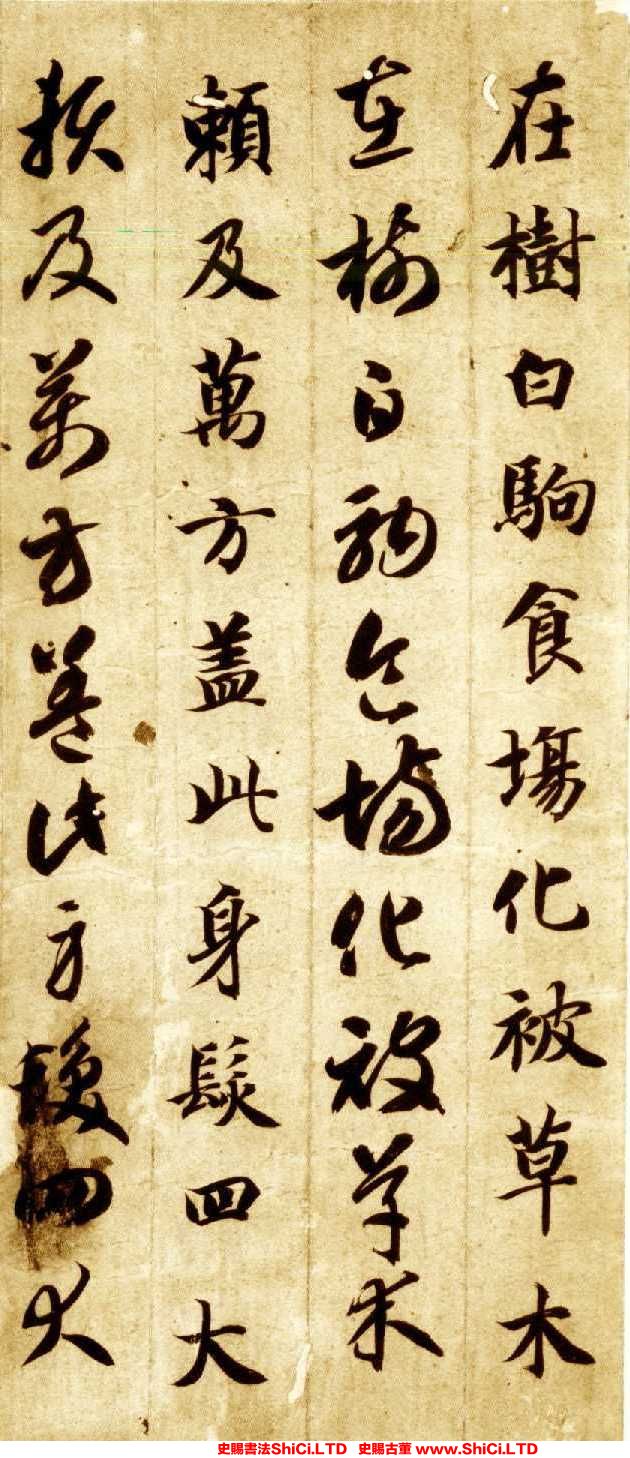 在樹白駒食場化被草木
在樹白駒食場化被草木
賴及萬方盖此身髮四大
賴及萬方盖此身髮四大
史賜書法ShiCi.LTD 史賜古董 www.ShiCi.LTD